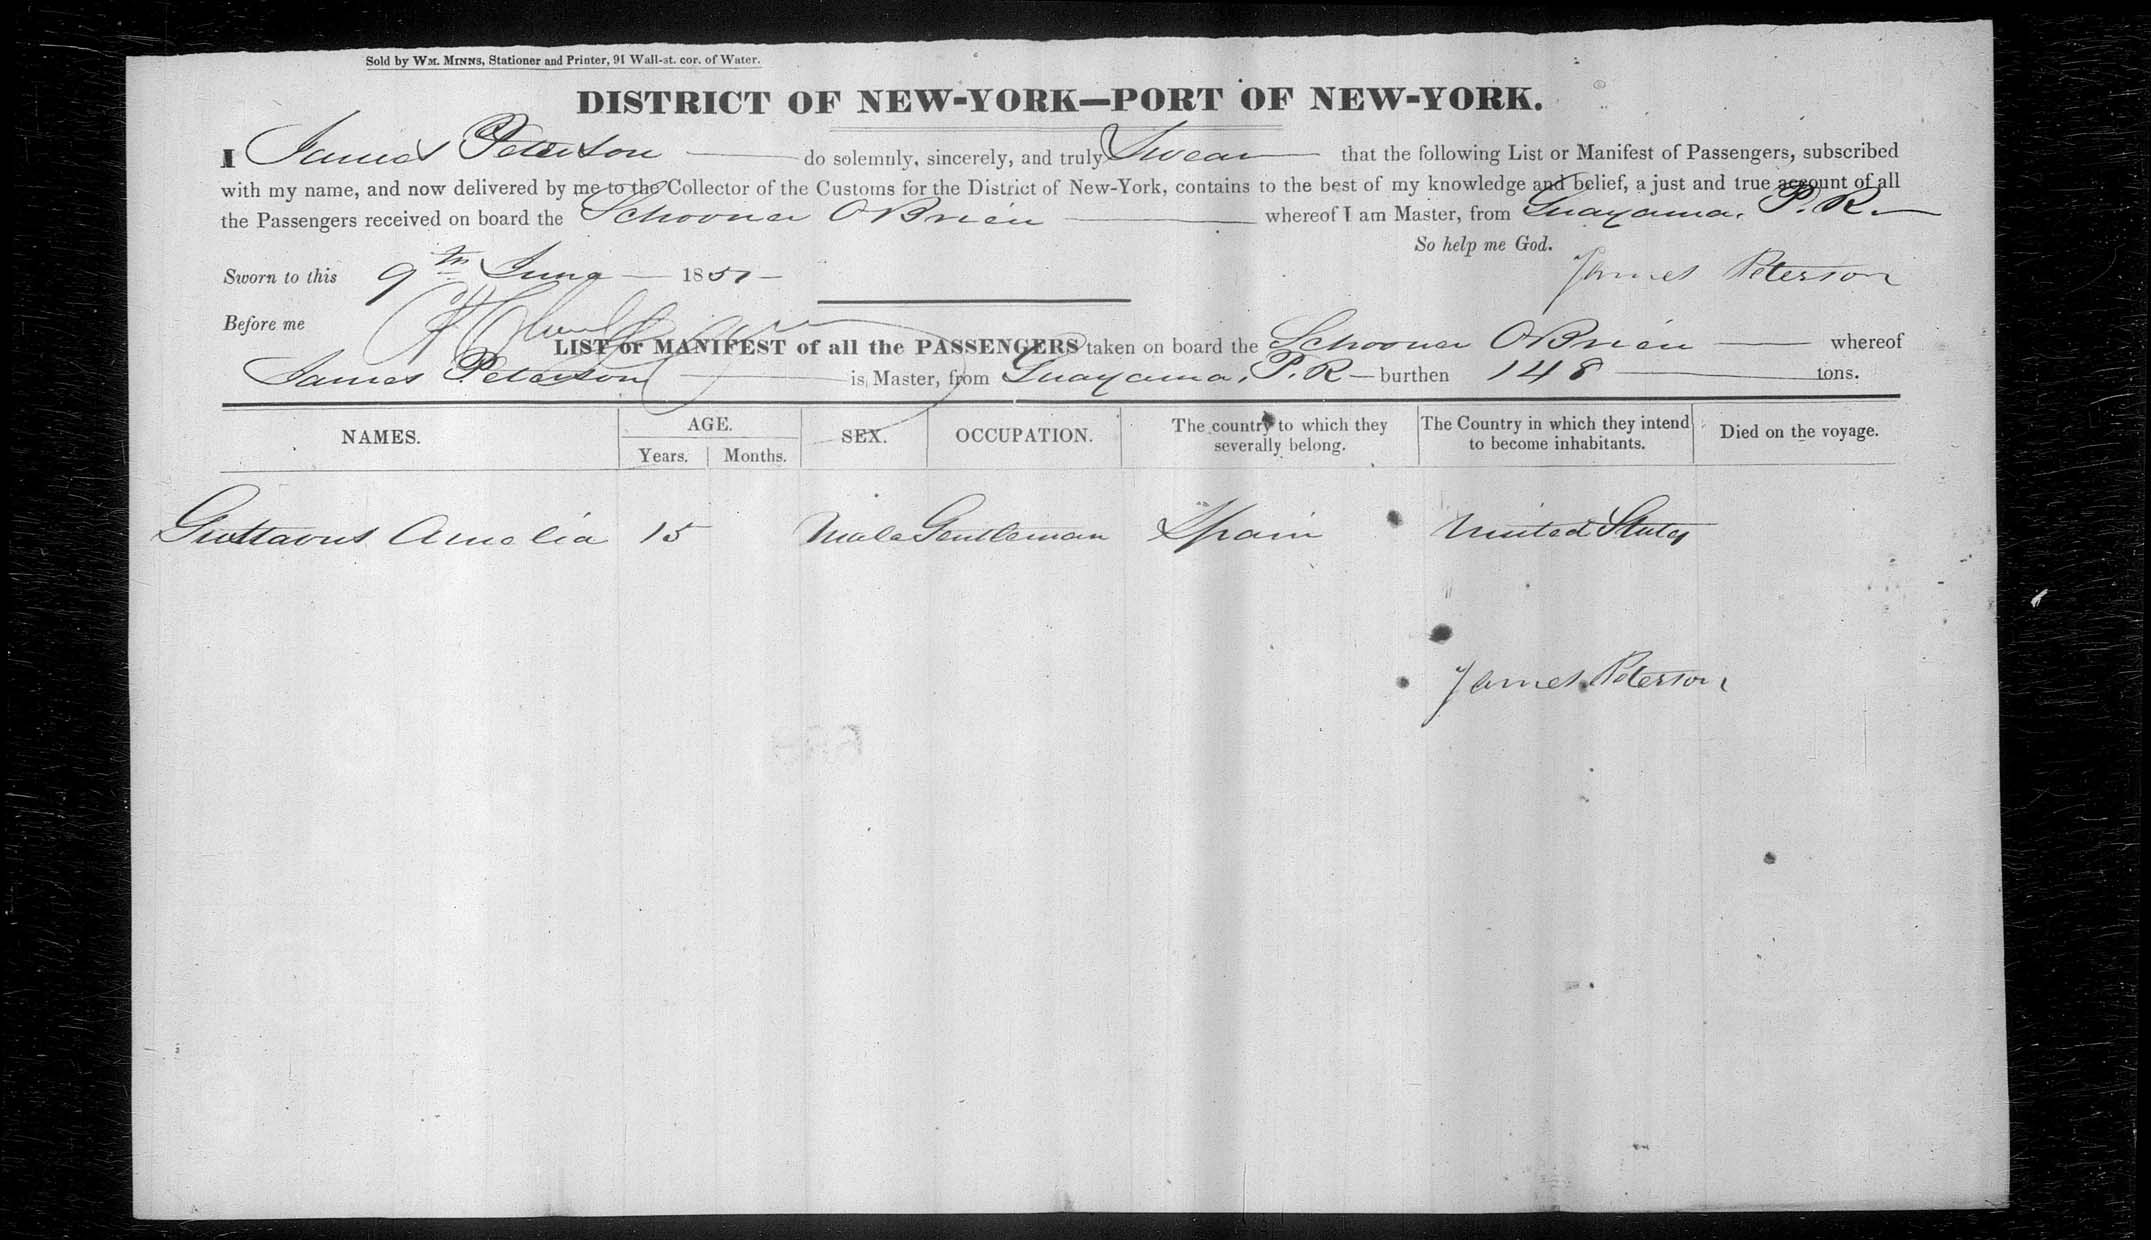 Sold by WM. MINNS, Stationer and Printer, 91 Wall-st. cor. of Water.
DISTRICT OF NEW-YORK—PORT OF NEW-YORK.
I James Peterson do solemnly, sincerely, and truly Swear that the following List or Manifest of Passengers, subscribed
with my name, and now delivered by me to the Collector of the Customs for the District of New-York, contains to the best of my knowledge and belief, a just and true account of all
the Passengers received on board the Schooner OBrien whereof I am Master, from Guayama, P.R.
So help me God.
Sworn to this 9th June 1851
James Peterson
Before me
LIST or MANIFEST of all the PASSENGERS taken on board the Schooner OBrien whereof
James Peterson is Master, from Guayama, P.R burthen 148 tons.
NAMES. AGE. Years. Months. SEX. OCCUPATION. The country to which they severally belong. The Country in which they intend to become inhabitants. Died on the voyage.
Gusttavus Amelia 15 Male Gentleman Spain United States
James Peterson